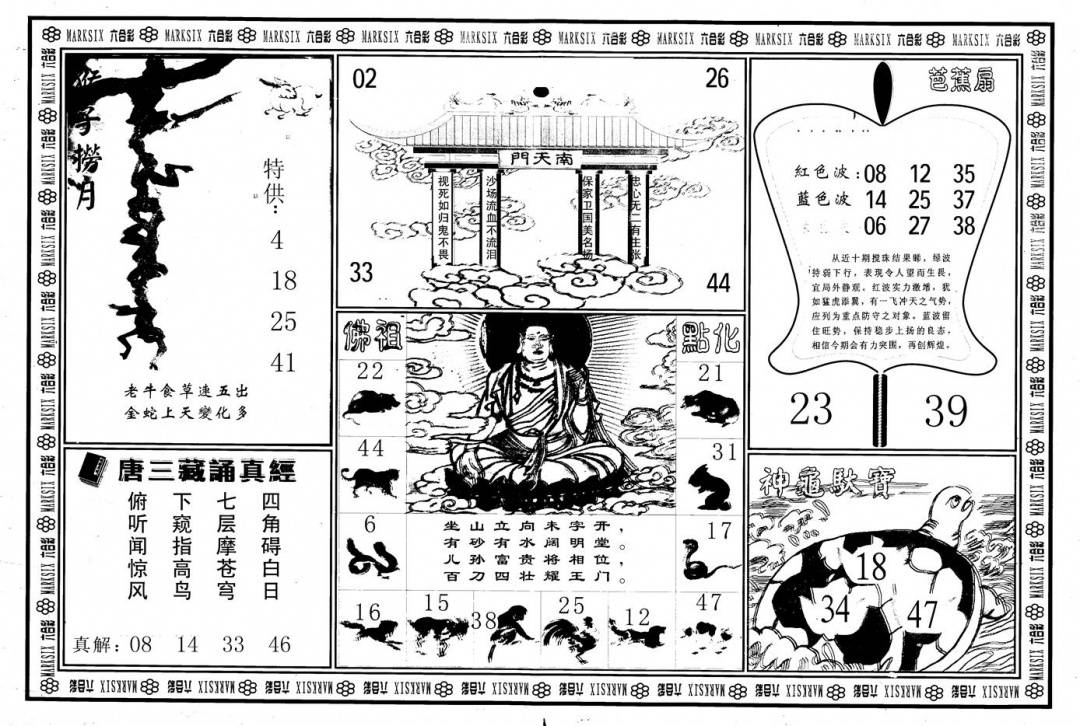 MARKSIX 六合彩 MARKSIX 六合彩 MARKSIX 六合彩 MARKSIX 六合彩 MARKSIX 六合彩 MARKSIX 六合彩 MARKSIX 六合彩 MARKSIX 六合彩 MARKSIX 六合彩 MARKSIX 六合彩
猴子撈月
特供：
4
18
25
41
老牛食草連五出
金蛇上天變化多
唐三藏誦真經
四角碍白日
七层摩苍穹
下窥指高鸟
俯听闻惊风
真解：08 14 33 46
02
26
南天門
忠心无二有主张
保家卫国美名扬
沙场流血不流泪
视死如归鬼不畏
33
44
佛祖
點化
22
21
44
31
6
17
坐山立向未字开，
有砂有水阔明堂。
儿孙富贵将相位，
百刀四壮耀王门。
16
15
38
25
12
47
芭蕉扇
紅色波：08 12 35
蓝色波 14 25 37
06 27 38
从近十期搅珠结果睇，绿波
特弱下行，表现令人望而生畏，
宜局外静观。红波实力激增，犹
如猛虎添翼，有一飞冲天之气势，
应列为重点防守之对象。蓝波留
住旺势，保持稳步上扬的良态，
相信今期会有力突围，再创辉煌。
23
39
神龜馱寶
18
34
47